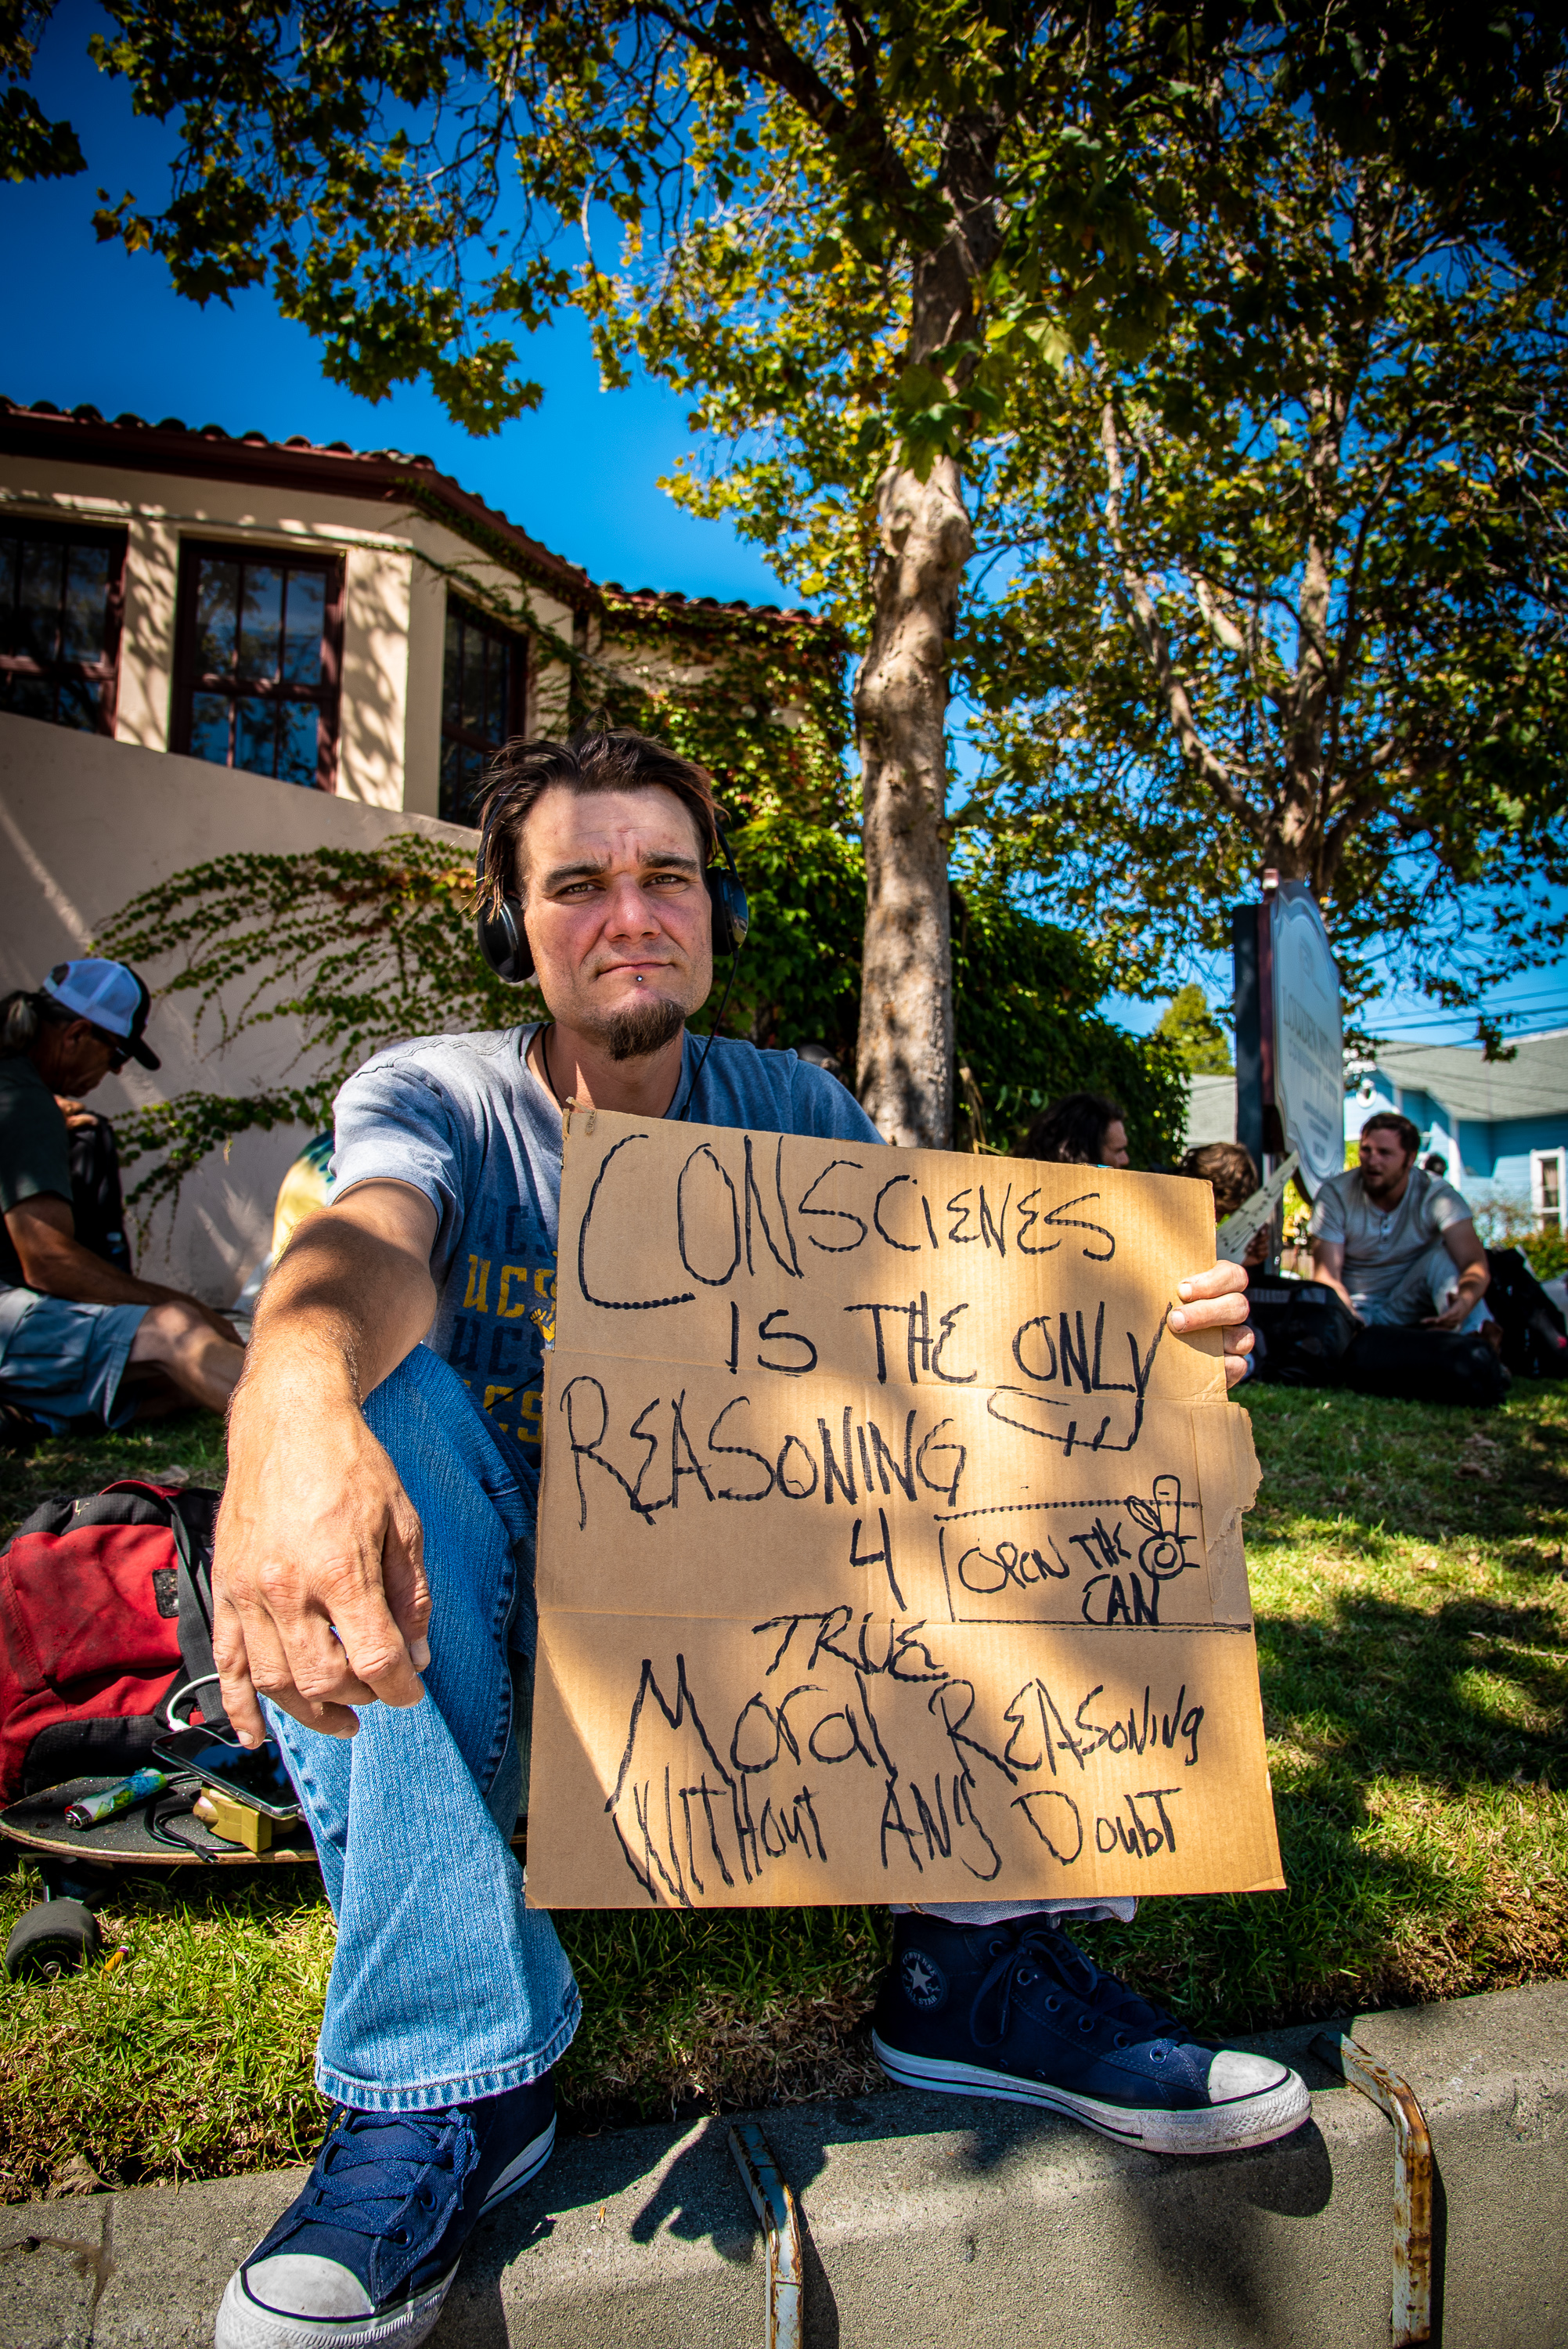 CONSCIENES
IS THE ONLY
REASONING
4
OPEN THE
CAN
TRUE
Moral REASoning
WITHout ANy DoubT
UCS
UCS
UCS
CS